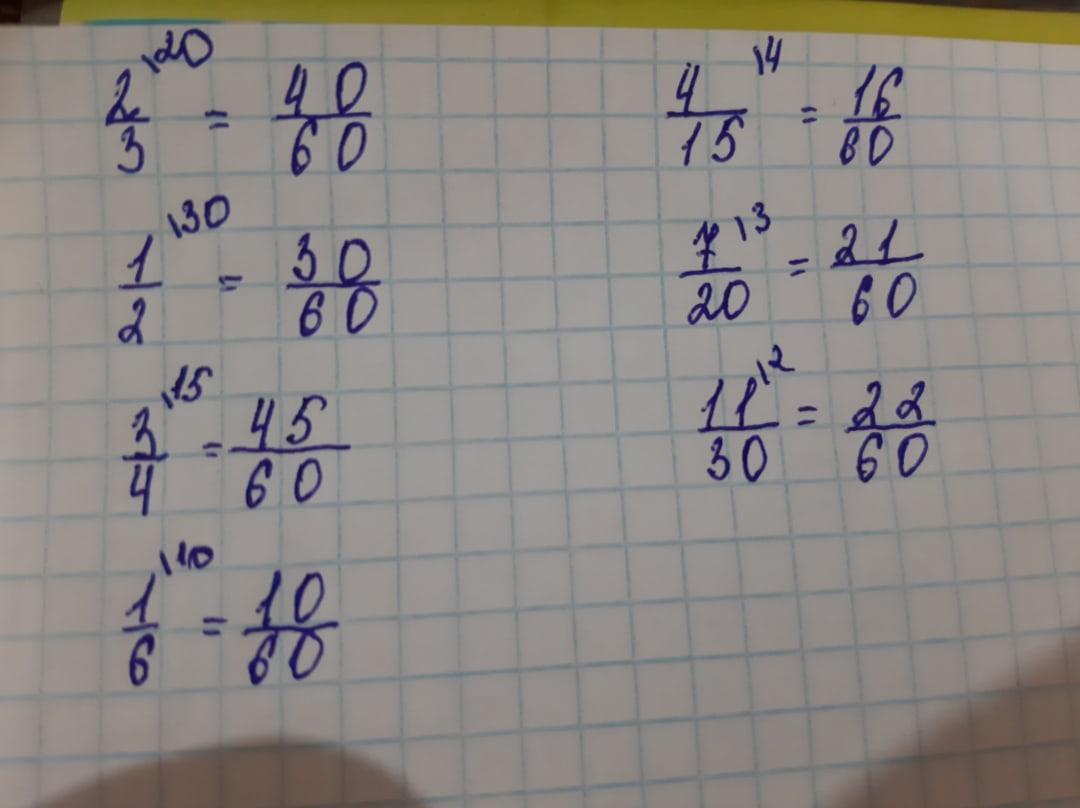 2/3 \20 = 40/60
1/2 \30 = 30/60
3/4 \15 = 45/60
1/6 \10 = 10/60
4/15 \4 = 16/60
7/20 \3 = 21/60
11/30 \2 = 22/60